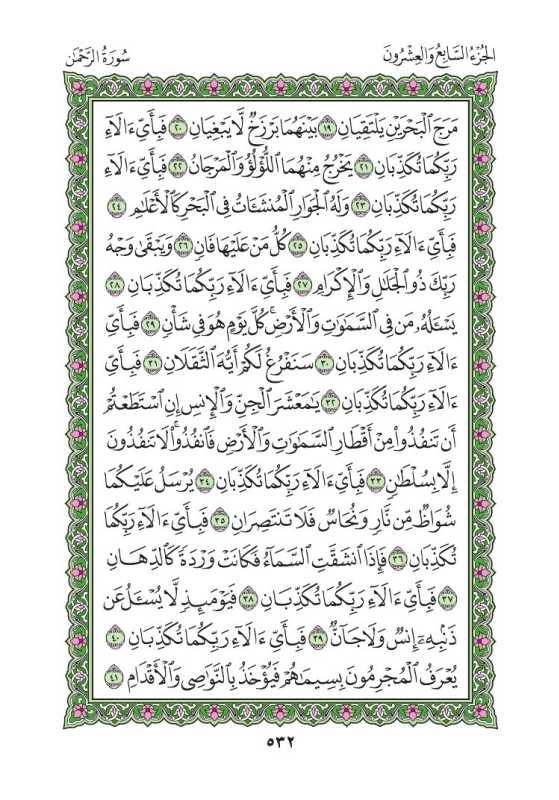 الجُزْءُ السَّابِعُ وَالعِشْرُونَ
سُورَةُ الرَّحْمَٰن
مَرَجَ ٱلْبَحْرَيْنِ يَلْتَقِيَانِ ١٩ بَيْنَهُمَا بَرْزَخٌ لَّا يَبْغِيَانِ ٢٠ فَبِأَيِّ ءَالَآءِ
رَبِّكُمَا تُكَذِّبَانِ ٢١ يَخْرُجُ مِنْهُمَا ٱللُّؤْلُؤُ وَٱلْمَرْجَانُ ٢٢ فَبِأَيِّ ءَالَآءِ
رَبِّكُمَا تُكَذِّبَانِ ٢٣ وَلَهُ ٱلْجَوَارِ ٱلْمُنشَـَٔاتُ فِي ٱلْبَحْرِ كَٱلْأَعْلَٰمِ ٢٤
فَبِأَيِّ ءَالَآءِ رَبِّكُمَا تُكَذِّبَانِ ٢٥ كُلُّ مَنْ عَلَيْهَا فَانٍ ٢٦ وَيَبْقَىٰ وَجْهُ
رَبِّكَ ذُو ٱلْجَلَٰلِ وَٱلْإِكْرَامِ ٢٧ فَبِأَيِّ ءَالَآءِ رَبِّكُمَا تُكَذِّبَانِ ٢٨
يَسْـَٔلُهُۥ مَن فِي ٱلسَّمَٰوَٰتِ وَٱلْأَرْضِۚ كُلَّ يَوْمٍ هُوَ فِي شَأْنٍ ٢٩ فَبِأَيِّ
ءَالَآءِ رَبِّكُمَا تُكَذِّبَانِ ٣٠ سَنَفْرُغُ لَكُمْ أَيُّهَ ٱلثَّقَلَانِ ٣١ فَبِأَيِّ
ءَالَآءِ رَبِّكُمَا تُكَذِّبَانِ ٣٢ يَٰمَعْشَرَ ٱلْجِنِّ وَٱلْإِنسِ إِنِ ٱسْتَطَعْتُمْ
أَن تَنفُذُوا۟ مِنْ أَقْطَارِ ٱلسَّمَٰوَٰتِ وَٱلْأَرْضِ فَٱنفُذُوا۟ۚ لَا تَنفُذُونَ
إِلَّا بِسُلْطَٰنٍ ٣٣ فَبِأَيِّ ءَالَآءِ رَبِّكُمَا تُكَذِّبَانِ ٣٤ يُرْسَلُ عَلَيْكُمَا
شُوَاظٌ مِّن نَّارٍ وَنُحَاسٌ فَلَا تَنتَصِرَانِ ٣٥ فَبِأَيِّ ءَالَآءِ رَبِّكُمَا
تُكَذِّبَانِ ٣٦ فَإِذَا ٱنشَقَّتِ ٱلسَّمَآءُ فَكَانَتْ وَرْدَةً كَٱلدِّهَانِ
٣٧ فَبِأَيِّ ءَالَآءِ رَبِّكُمَا تُكَذِّبَانِ ٣٨ فَيَوْمَئِذٍ لَّا يُسْـَٔلُ عَن
ذَنۢبِهِۦٓ إِنسٌ وَلَا جَآنٌّ ٣٩ فَبِأَيِّ ءَالَآءِ رَبِّكُمَا تُكَذِّبَانِ ٤٠
يُعْرَفُ ٱلْمُجْرِمُونَ بِسِيمَٰهُمْ فَيُؤْخَذُ بِٱلنَّوَٰصِي وَٱلْأَقْدَامِ ٤١
٥٣٢